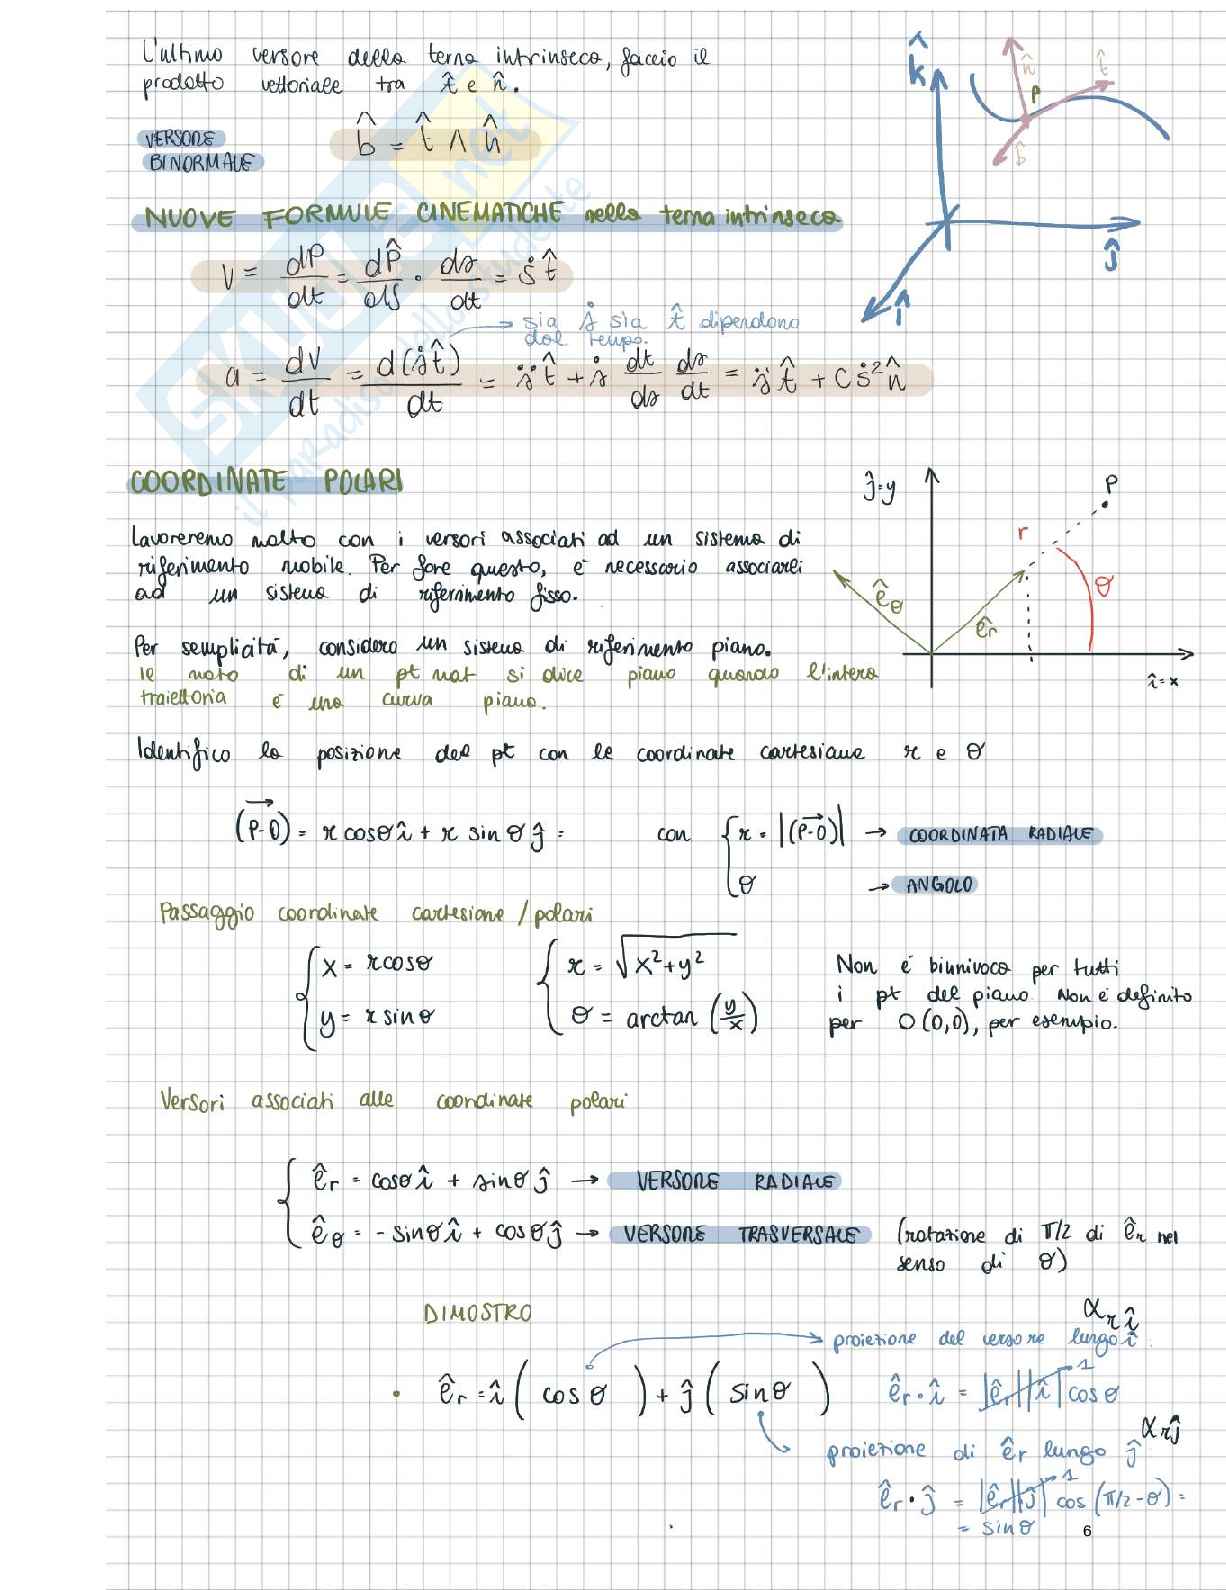 L'ultimo versore della terna intrinseca, faccio il
prodotto vettoriale tra t̂ e n̂.
VERSORE
BINORMALE
b̂ = t̂ ∧ n̂
k̂
n̂
t̂
P
b̂
ĵ
î
NUOVE FORMULE CINEMATICHE nella terna intrinseca
V = dP/dt = dP̂/dS · ds/dt = ṡ t̂
→ sia ṡ sia t̂ dipendono
dal tempo.
a = dV/dt = d(ṡt̂)/dt = s̈ t̂ + ṡ dt/ds ds/dt = s̈ t̂ + C ṡ² n̂
COORDINATE POLARI
ĵ=y
P
r
θ
ê_θ
ê_r
î=x
Lavoreremo molto con i versori associati ad un sistema di
riferimento mobile. Per fare questo, è necessario associarli
ad un sistema di riferimento fisso.
Per semplicità, considero un sistema di riferimento piano.
Il moto di un pt mat si dice piano quando l'intera
traiettoria è una curva piana.
Identifico la posizione del pt con le coordinate cartesiane r e θ
(P-O) = r cosθ î + r sinθ ĵ =
con { r = |(P-O)| → COORDINATA RADIALE
θ → ANGOLO
Passaggio coordinate cartesiane / polari
{ x = r cosθ
y = r sinθ
{ r = √x²+y²
θ = arctan (y/x)
Non è biunivoca per tutti
i pt del piano. Non è definito
per O (0,0), per esempio.
Versori associati alle coordinate polari
{ ê_r = cosθ î + sinθ ĵ → VERSORE RADIALE
ê_θ = - sinθ î + cosθ ĵ → VERSORE TRASVERSALE (rotazione di π/2 di ê_r nel
senso di θ)
DIMOSTRO
α_r î
→ proiezione del versore lungo î.
• ê_r = î ( cosθ ) + ĵ ( sinθ )
ê_r · î = |ê_r||î| 1 cosθ
α_r ĵ
proiezione di ê_r lungo ĵ
ê_r · ĵ = |ê_r||ĵ| 1 cos (π/2 - θ) =
= sinθ
6
SKUOLA.net
il paradiso dello studente